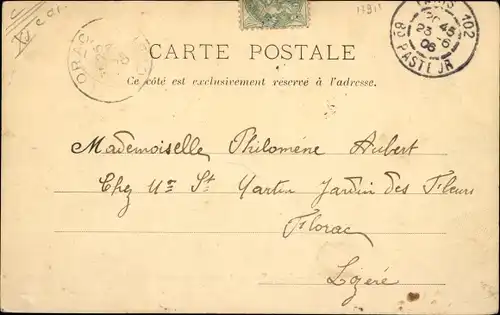 13918
PARIS 102
45
23 -6
06
68 PASTEUR
CARTE POSTALE
Ce côté est exclusivement réservé à l'adresse.
Mademoiselle Philomène Aubert
Chez Mr St Martin Jardin des Fleurs
Florac
Lozère